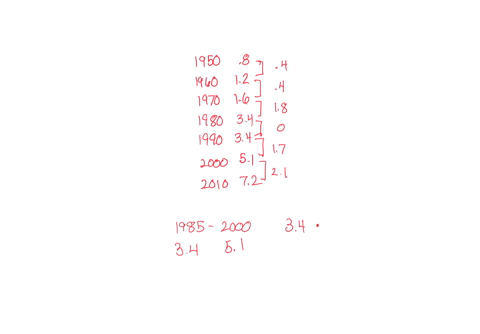 1950 .8 .4
1960 1.2 .4
1970 1.6 1.8
1980 3.4 0
1990 3.4 1.7
2000 5.1 2.1
2010 7.2
1985 - 2000 3.4 •
3.4 5.1